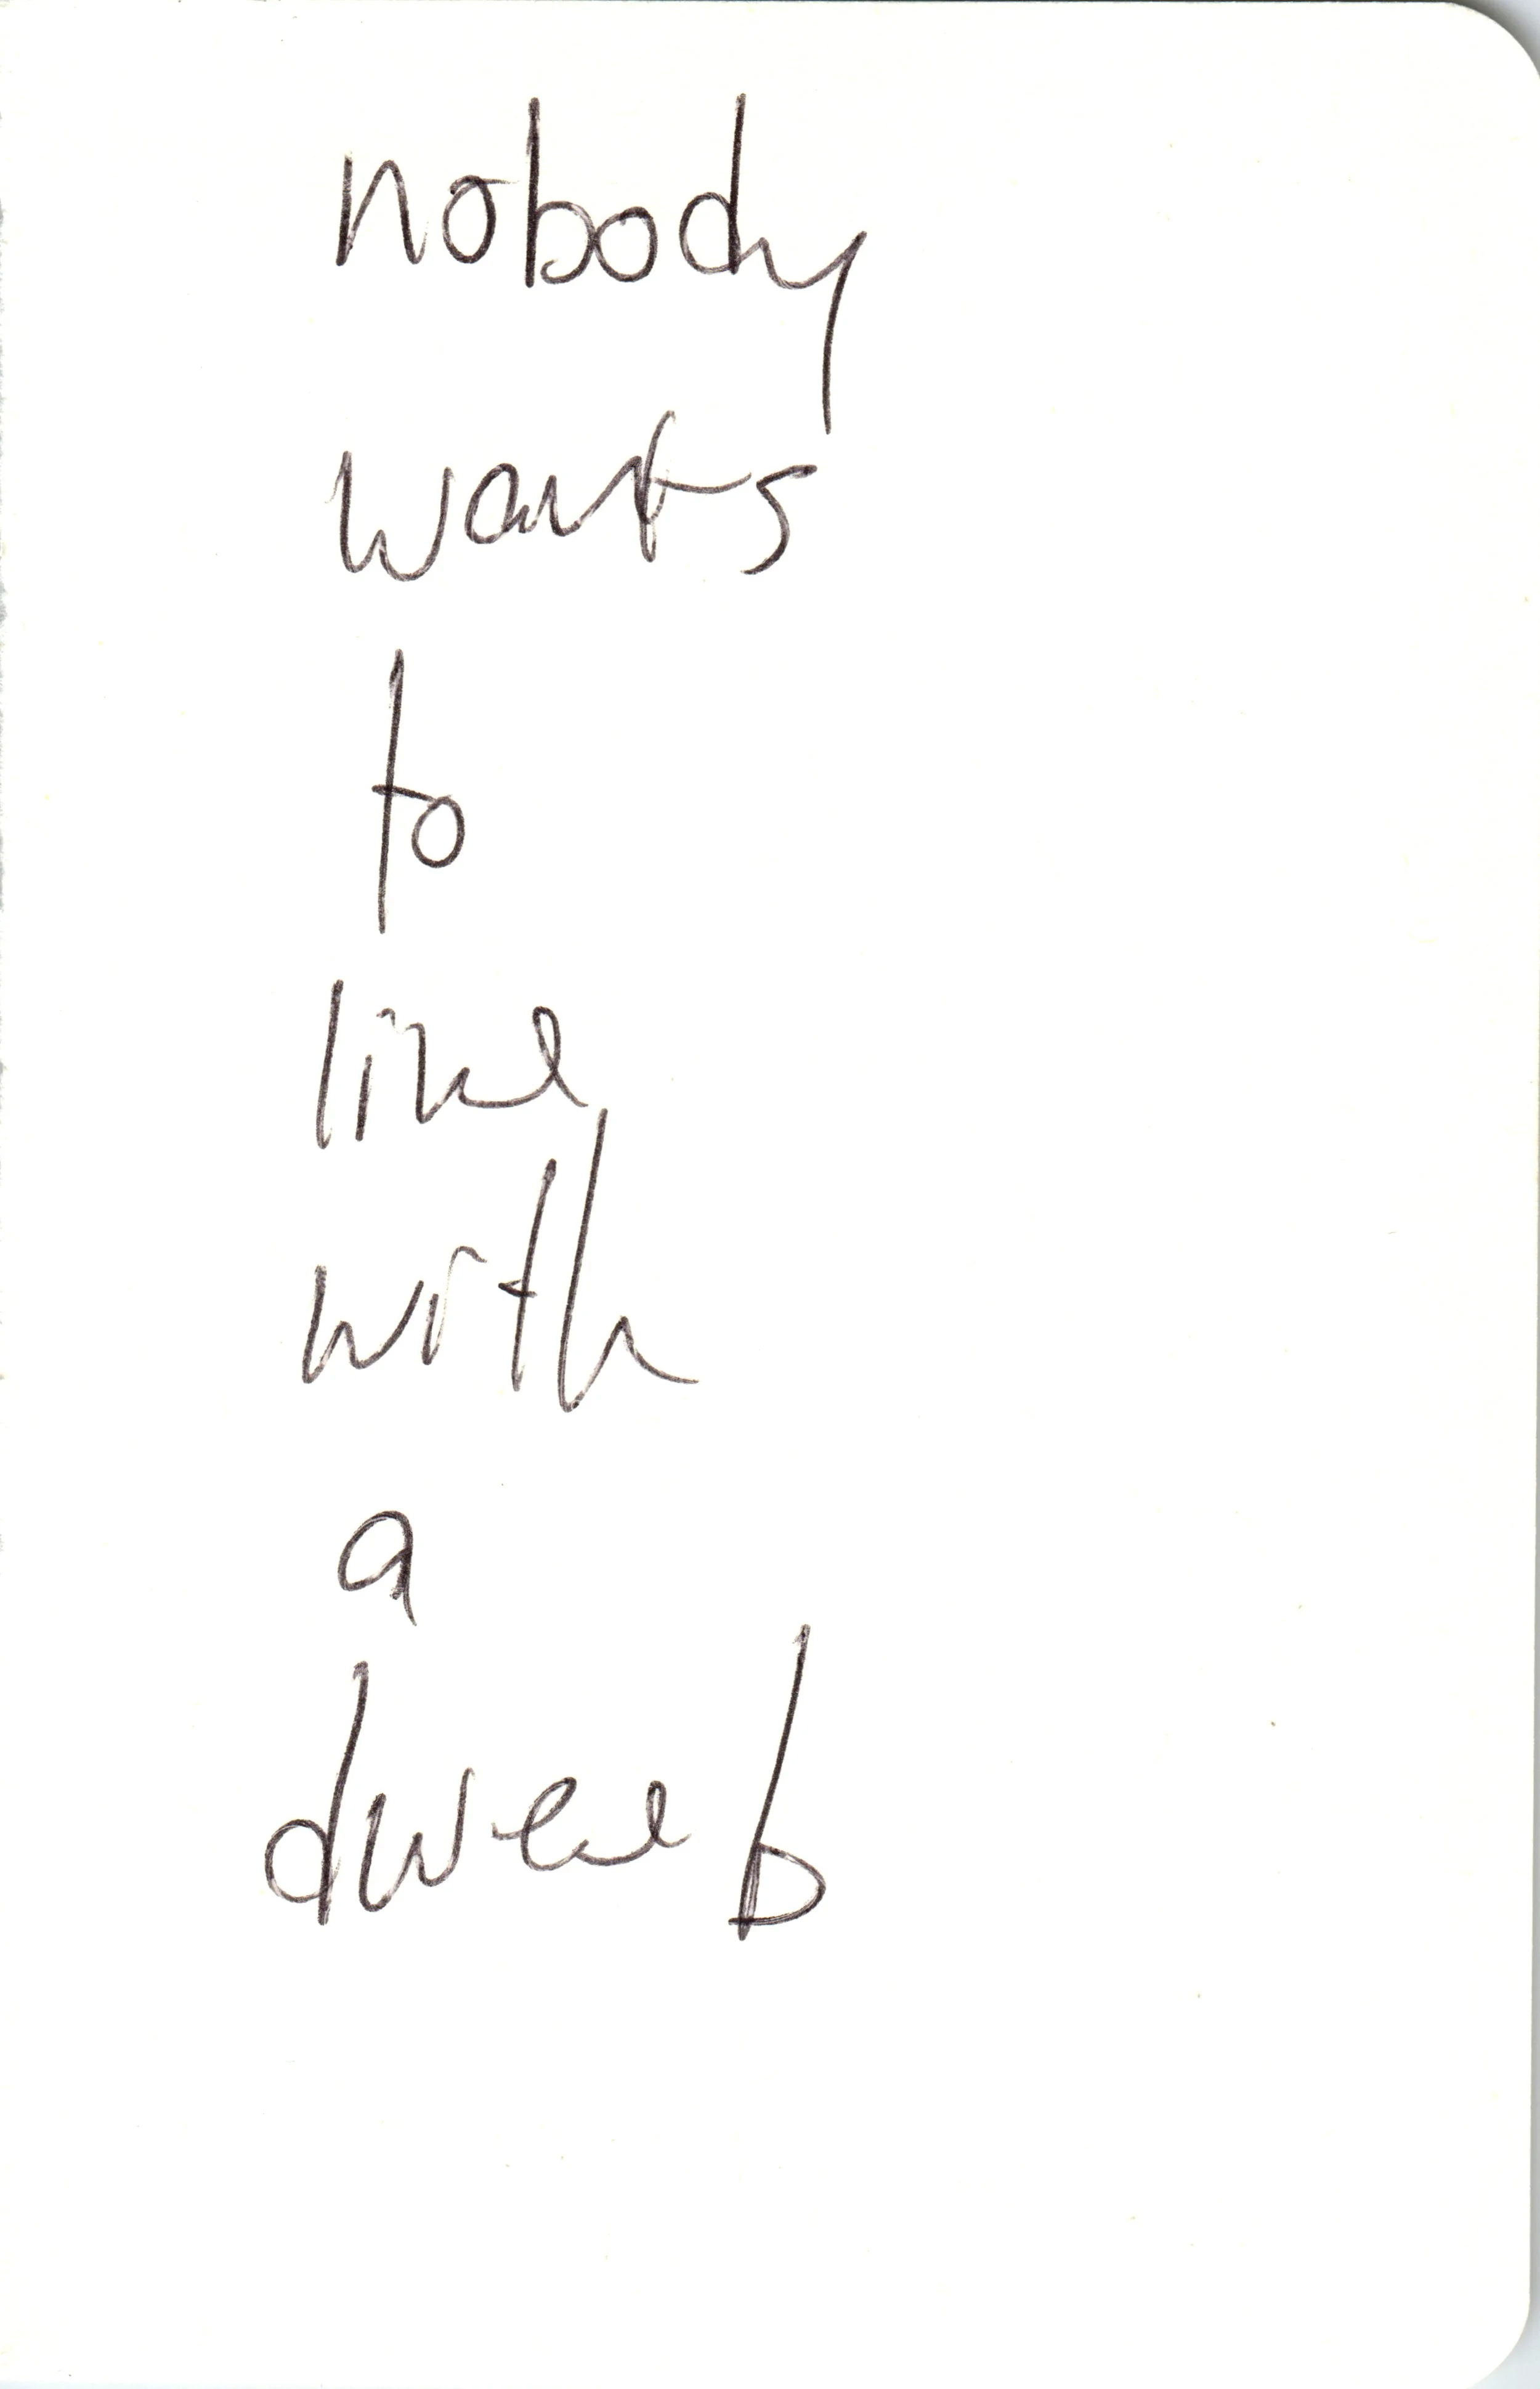 nobody
wants
to
line
with
a
dweeb